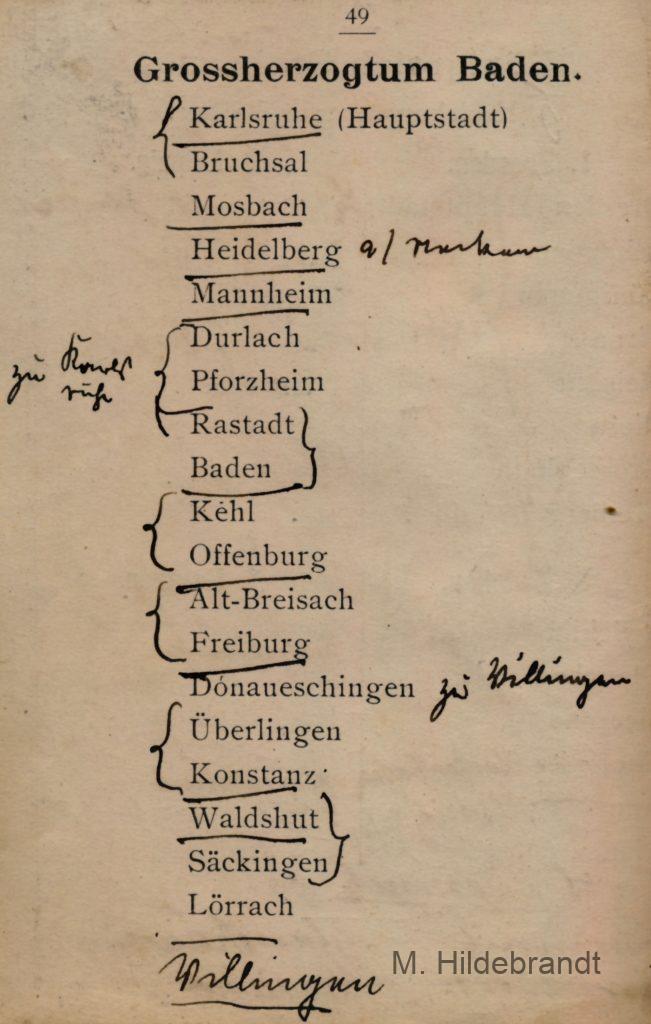 49
Grossherzogtum Baden.
Karlsruhe (Hauptstadt)
Bruchsal
Mosbach
Heidelberg a/
Mannheim
Durlach
zu Karls
ruhe
Pforzheim
Rastadt
Baden
Kehl
Offenburg
Alt-Breisach
Freiburg
Donaueschingen zu Villingen
Überlingen
Konstanz
Waldshut
Säckingen
Lörrach
Villingen
M. Hildebrandt